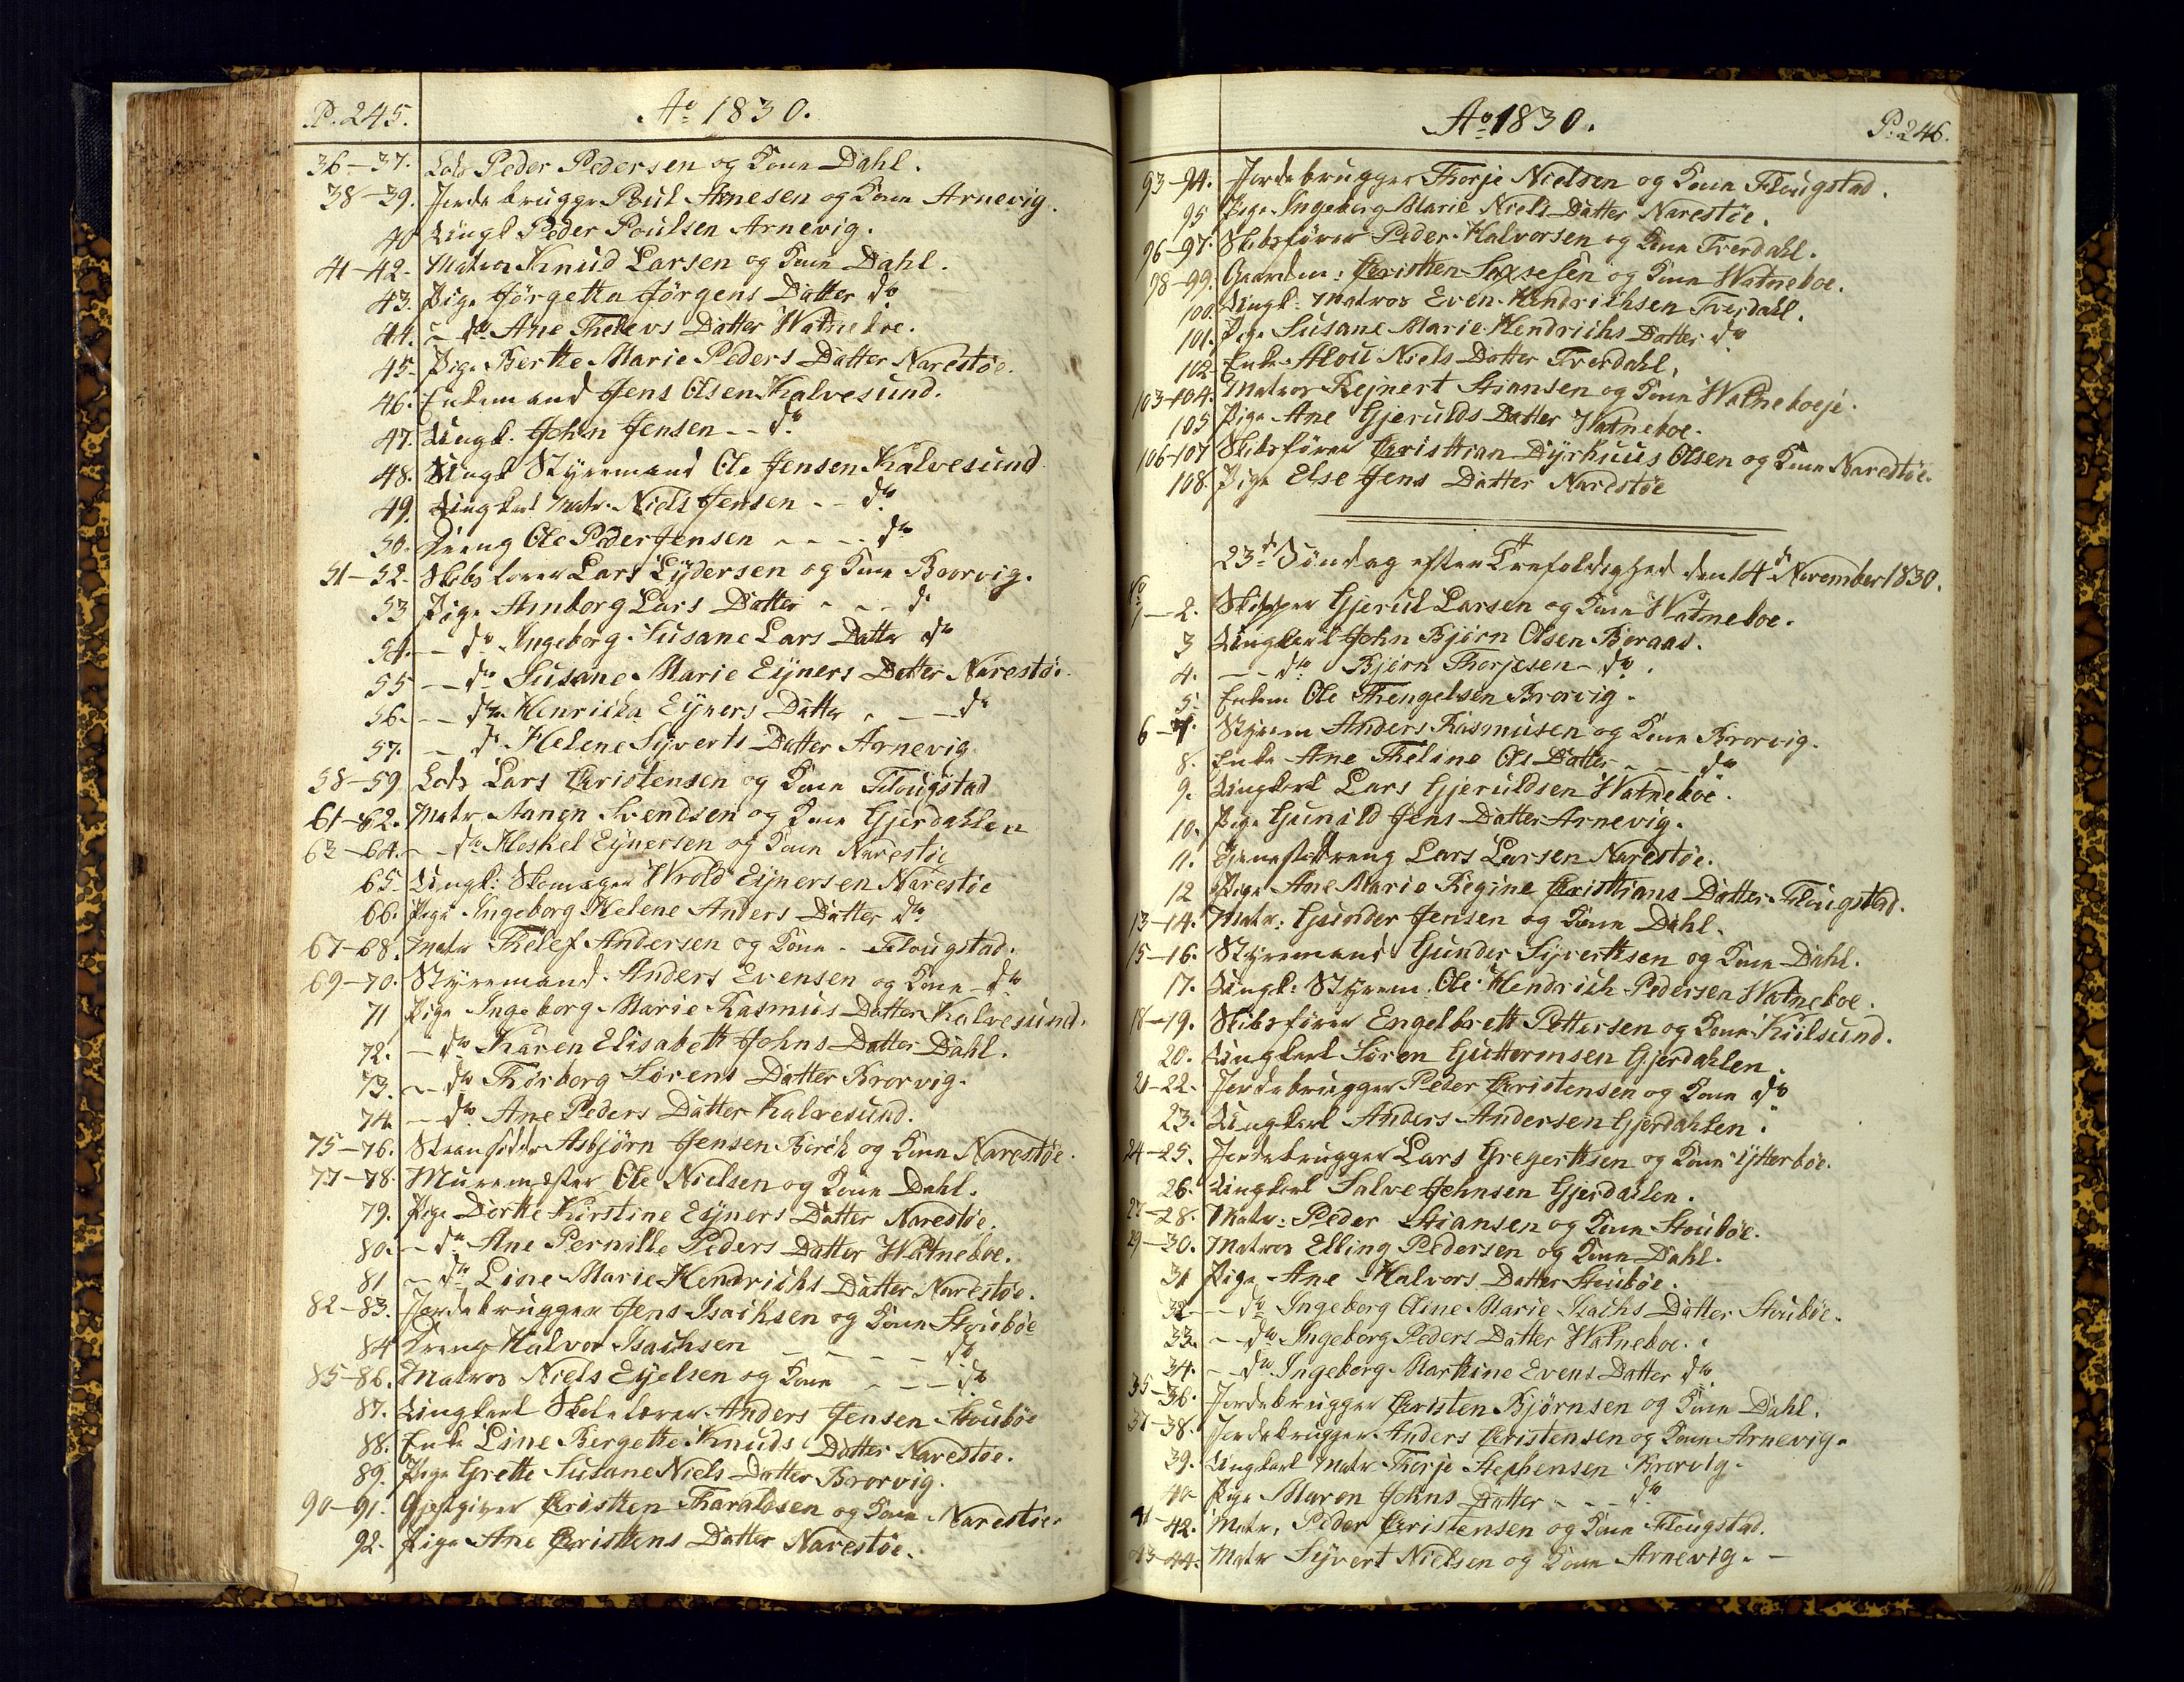 P. 245.
Ao 1830.
36-37. Lods Peder Pedersen og Kone Dahl.
38-39. Jordebrugger Poul Arnesen og Kone Arnevig.
40 Ungk Peder Poulsen Arnevig.
41-42. Matros Knud Larsen og Kone Dahl.
43. Pige Jörgetta Jörgens Datter do
44. - do Ane Thelevs Datter Watneboe.
45. Pige Berthe Marie Peders Datter Narestöe.
46. Enkemand Jens Olsen Kalvesund.
47. Ungk. John Jensen - - do
48. Ungk Styremand Ole Jensen Kalvesund
49. Ungkarl Matr. Niels Jensen - - do
50. Dreng Ole Peder Jensen - - - - do
51-52. Skibsfører Lars Lydersen og Kone Brorvig.
53 Pige Amborg Lars Datter - - - do
54. - - do Ingeborg Susane Lars Datter do
55 - - do Susane Marie Eyners Datter Narestöe.
56. - - do Henricha Eyners Datter - - - do
57. - do Helene Syverts Datter Arnevig
58-59 Lods Lars Christensen og Kone Flougstad
61-62. Matr. Aanen Svendsen og Kone Gjerdahlen
63-64. - - do Aleskel Eynersen og Kone Narestöe
65. Ungk: Skomager Wrold Eynersen Narestöe
66. Pige Ingeborg Helene Anders Datter do
67-68. Matr Thelef Andersen og Kone - Flougstad.
69-70. Styremand Anders Evensen og Kone - do
71 Pige Ingeborg Marie Rasmus Datter Kalvesund.
72. - do Karen Elisabeth Johns Datter Dahl.
73. - do Thorborg Sörens Datter Brorvig.
74. - do Ane Peders Datter Kalvesund.
75-76. Strandsidder Asbjörn Jensen Birch og Kone Narestöe.
77-78. Muremester Ole Nielsen og Kone Dahl.
79. Pige Dorthe Kirstine Eyners Datter Narestöe.
80. - do Ane Pernille Peders Datter Watneboe.
81 - do Line Marie Hendrichs Datter Narestöe.
82-83. Jordebrugger Jens Isachsen og Kone Stouböe
84 Dreng Halvor Isachsen - - - - do
85-86. Matros Niels Eyelsen og Kone - - - do
87. Ungkarl Skolelærer Anders Jensen Stouböe
88. Enke Line Bergethe Knuds Datter Narestöe.
89. Pige Grethe Susane Niels Datter Brorvig.
90-91. Gjestgiver Christen Tharaldsen og Kone Narestöe.
92. Pige Ane Christens Datter Narestöe.
Ao 1830.
P. 246.
93-94. Jordebrugger Thorje Nielsen og Kone Flougstad.
95 Pige Ingeborg Marie Niels Datter Narestöe.
96-97. Skibsfører Peder Halvorsen og Kone Tverdahl.
98-99. Gaardm: Christen Saxsesen og Kone Watneboe.
100. Ungk: Matros Even Hendrichsen Tverdahl.
101. Pige Susane Marie Hendrichs Datter do
102. Enke Alou Niels Datter Tverdahl.
103-104. Matros Rejnert Stiansen og Kone Watneboeje.
105 Pige Ane Gjerulds Datter Watneboe.
106-107 Skibsfører Christian Dyrhuus Olsen og Kone Narestöe.
108. Pige Else Jens Datter Narestöe
23de Söndag efter Trefoldighed den 14de November 1830.
No
1-2. Skipper Gjerul Larsen og Kone Watneboe.
3 Ungkarl John Björn Olsen Boraas.
4. - - do Björn Thorjesen - do.
5. Enkem Ole Thengelsen Brorvig.
6-7. Styrem Anders Rasmusen og Kone Brorvig.
8. Enke Ane Theline Ols Datter - - - do
9. Ungkarl Lars Gjeruldsen Watneböe.
10. Pige Gunild Jens Datter Arnevig.
11. Tjenestedreng Lars Larsen Narestöe.
12 Pige Ane Marie Regine Christians Datter Flougstad.
13-14. Matr: Gunder Jensen og Kone Dahl.
15-16. Styremand Gunder Syvertsen og Kone Dahl.
17. Ungk: Styrem. Ole Hendrich Pedersen Watneboe.
18-19. Skibsfører Engelbrett Pettersen og Kone Kiilsund.
20. Ungkarl Sören Guttormsen Gjerdahlen
21-22. Jordebrugger Peder Christensen og Kone do
23. Ungkarl Anders Andersen Gjerdahlen.
24-25. Jordebrugger Lars Gregertsen og Kone Ytterböe.
26. Ungkarl Salve Johnsen Gjerdahlen.
27-28. Matr: Peder Stiansen og Kone Stouböe.
29-30. Matros Elling Pedersen og Kone Dahl.
31 Pige Ane Halvors Datter Stouböe.
32 - - do Ingeborg Oline Marie Isachs Datter Stouböe.
33. - - do Ingeborg Peders Datter Watneboe.
34. - do Ingeborg Marthine Evens Datter do
35-36. Jordebrugger Christen Björnsen og Kone Dahl.
37-38. Jordebrugger Anders Christensen og Kone Arnevig.
39. Ungkarl Matr Thorje Stephensen Brorvig.
40 Pige Maren Johns Datter - - - do
41-42. Matr. Peder Christensen og Kone Flougstad.
43-44. Matr Syvert Nielsen og Kone Arnevig. -